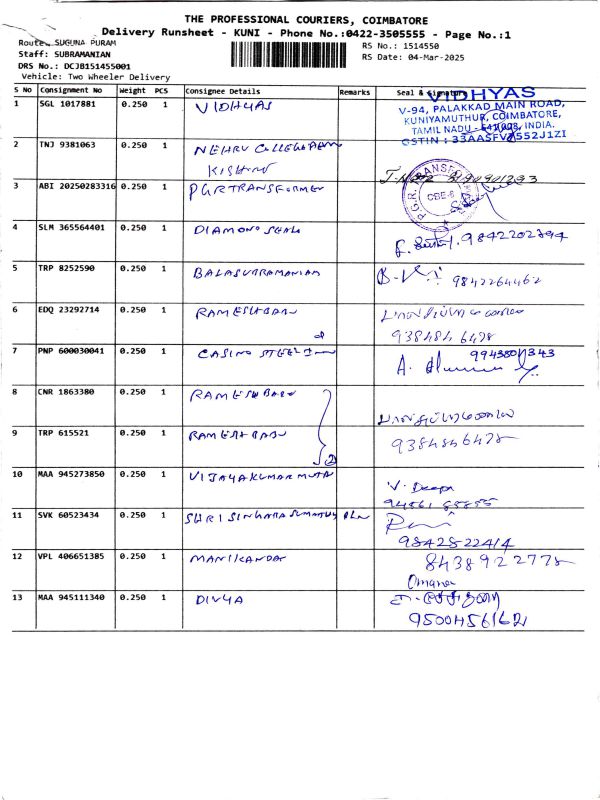 THE PROFESSIONAL COURIERS, COIMBATORE
Delivery Runsheet - KUNI - Phone No.:0422-3505555 - Page No.:1
Route: SUGUNA PURAM
RS No.: 1514550
Staff: SUBRAMANIAN
RS Date: 04-Mar-2025
DRS No.: DCJB151455001
Vehicle: Two Wheeler Delivery
S No Consignment No Weight PCS Consignee Details Remarks Seal & Signature
1 SGL 1017881 0.250 1 VIDHYAS
VIDHYAS
V-94, PALAKKAD MAIN ROAD,
KUNIYAMUTHUR, COIMBATORE,
TAMIL NADU - 641008, INDIA.
2 TNJ 9381063 0.250 1 NEHRU COLLEGE
KISHORE
3 ABI 20250283316 0.250 1 PGR TRANSFORMER
P.G.R. CBE-8
4 SLM 365564401 0.250 1 DIAMOND SEALS
9842202394
5 TRP 8252590 0.250 1 BALASUBRAMANIAM
9842264462
6 EDQ 23292714 0.250 1 RAMESHBABU
938484 6478
7 PNP 600030041 0.250 1 CASINO STEEL
A.
8 CNR 1863380 0.250 1 RAMESHBABU
9 TRP 615521 0.250 1 RAMESHBABU
9384846478
10 MAA 945273850 0.250 1 VIJAYAKUMAR
V. Deepa
11 SVK 60523434 0.250 1 SHRI SINGHARA
9842822414
12 VPL 406651385 0.250 1 MANIKANDAN
8438922778
13 MAA 945111340 0.250 1 DIVYA
9500456162